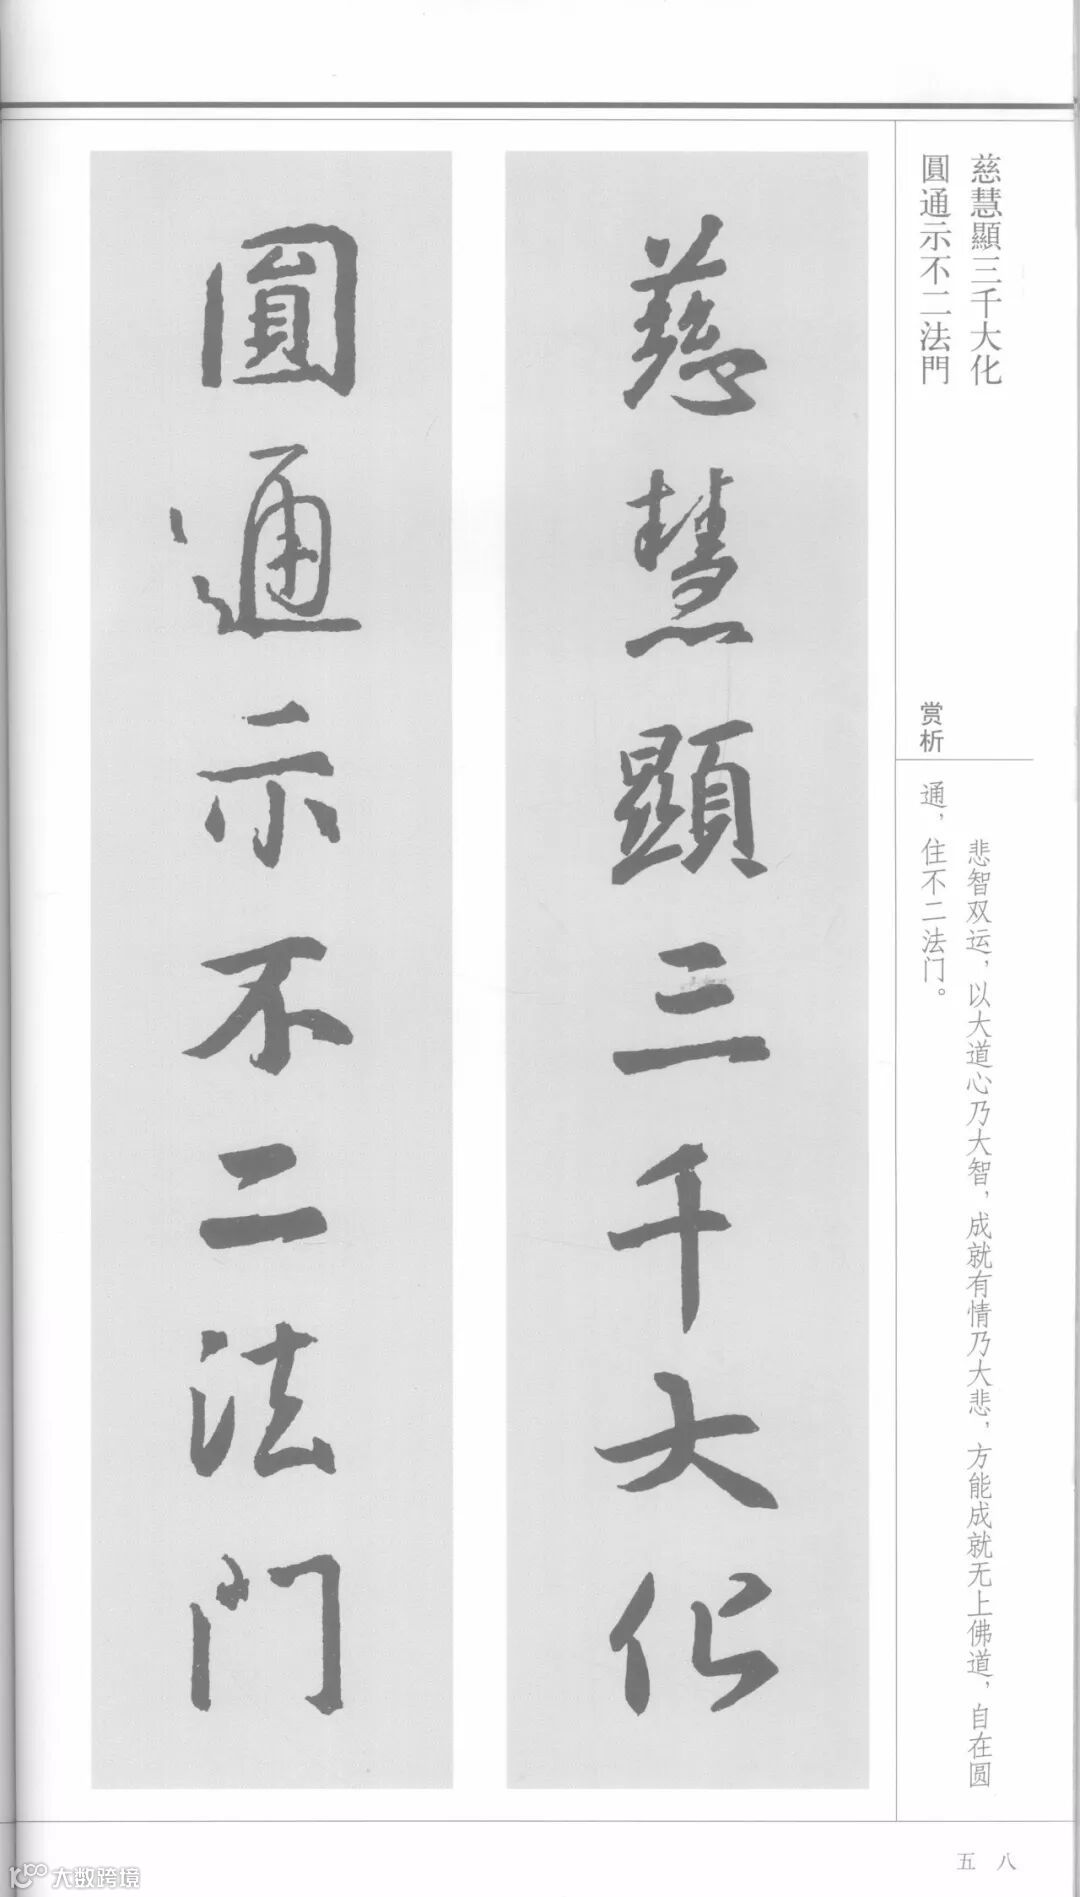 慈慧顯三千大化
圓通示不二法門
賞析
悲智双运，以大道心乃大智，成就有情乃大悲，方能成就无上佛道，自在圆
通，住不二法门。
慈慧顯三千大化
圓通示不二法门
五八
大数跨境